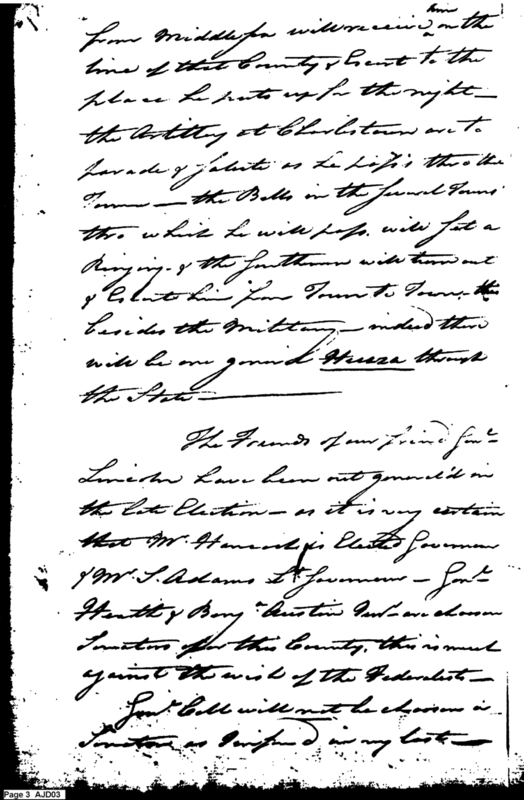 him
from Middlesex will receive ^ on the
line of that County & Escort to the
place he puts up for the night —
the Artillery at Charlstown are to
parade & Salute as he pass's thro the
Town — the Bells in the Several Towns
thro which he will pass, will Set a
Ringing. & the Gentlemen will turn out
& Escort him from Town to Town,
besides the Military — indeed there
will be one general Huzza through
the State —
The Friends of our friend Genl.
Lincoln have been out general'd in
the late Election — as it is very certain
that Mr. Hancock is Elected Governour
& Mr. S. Adams Lt. Governour — Genl.
Heath & Benjn. Austin Junr. are chosen
Senators for this County, this is much
against the wish of the Federalists —
Genl. Cobb will not be chosen a
Senator, as I inform'd in my last —
Page 3 AJD03